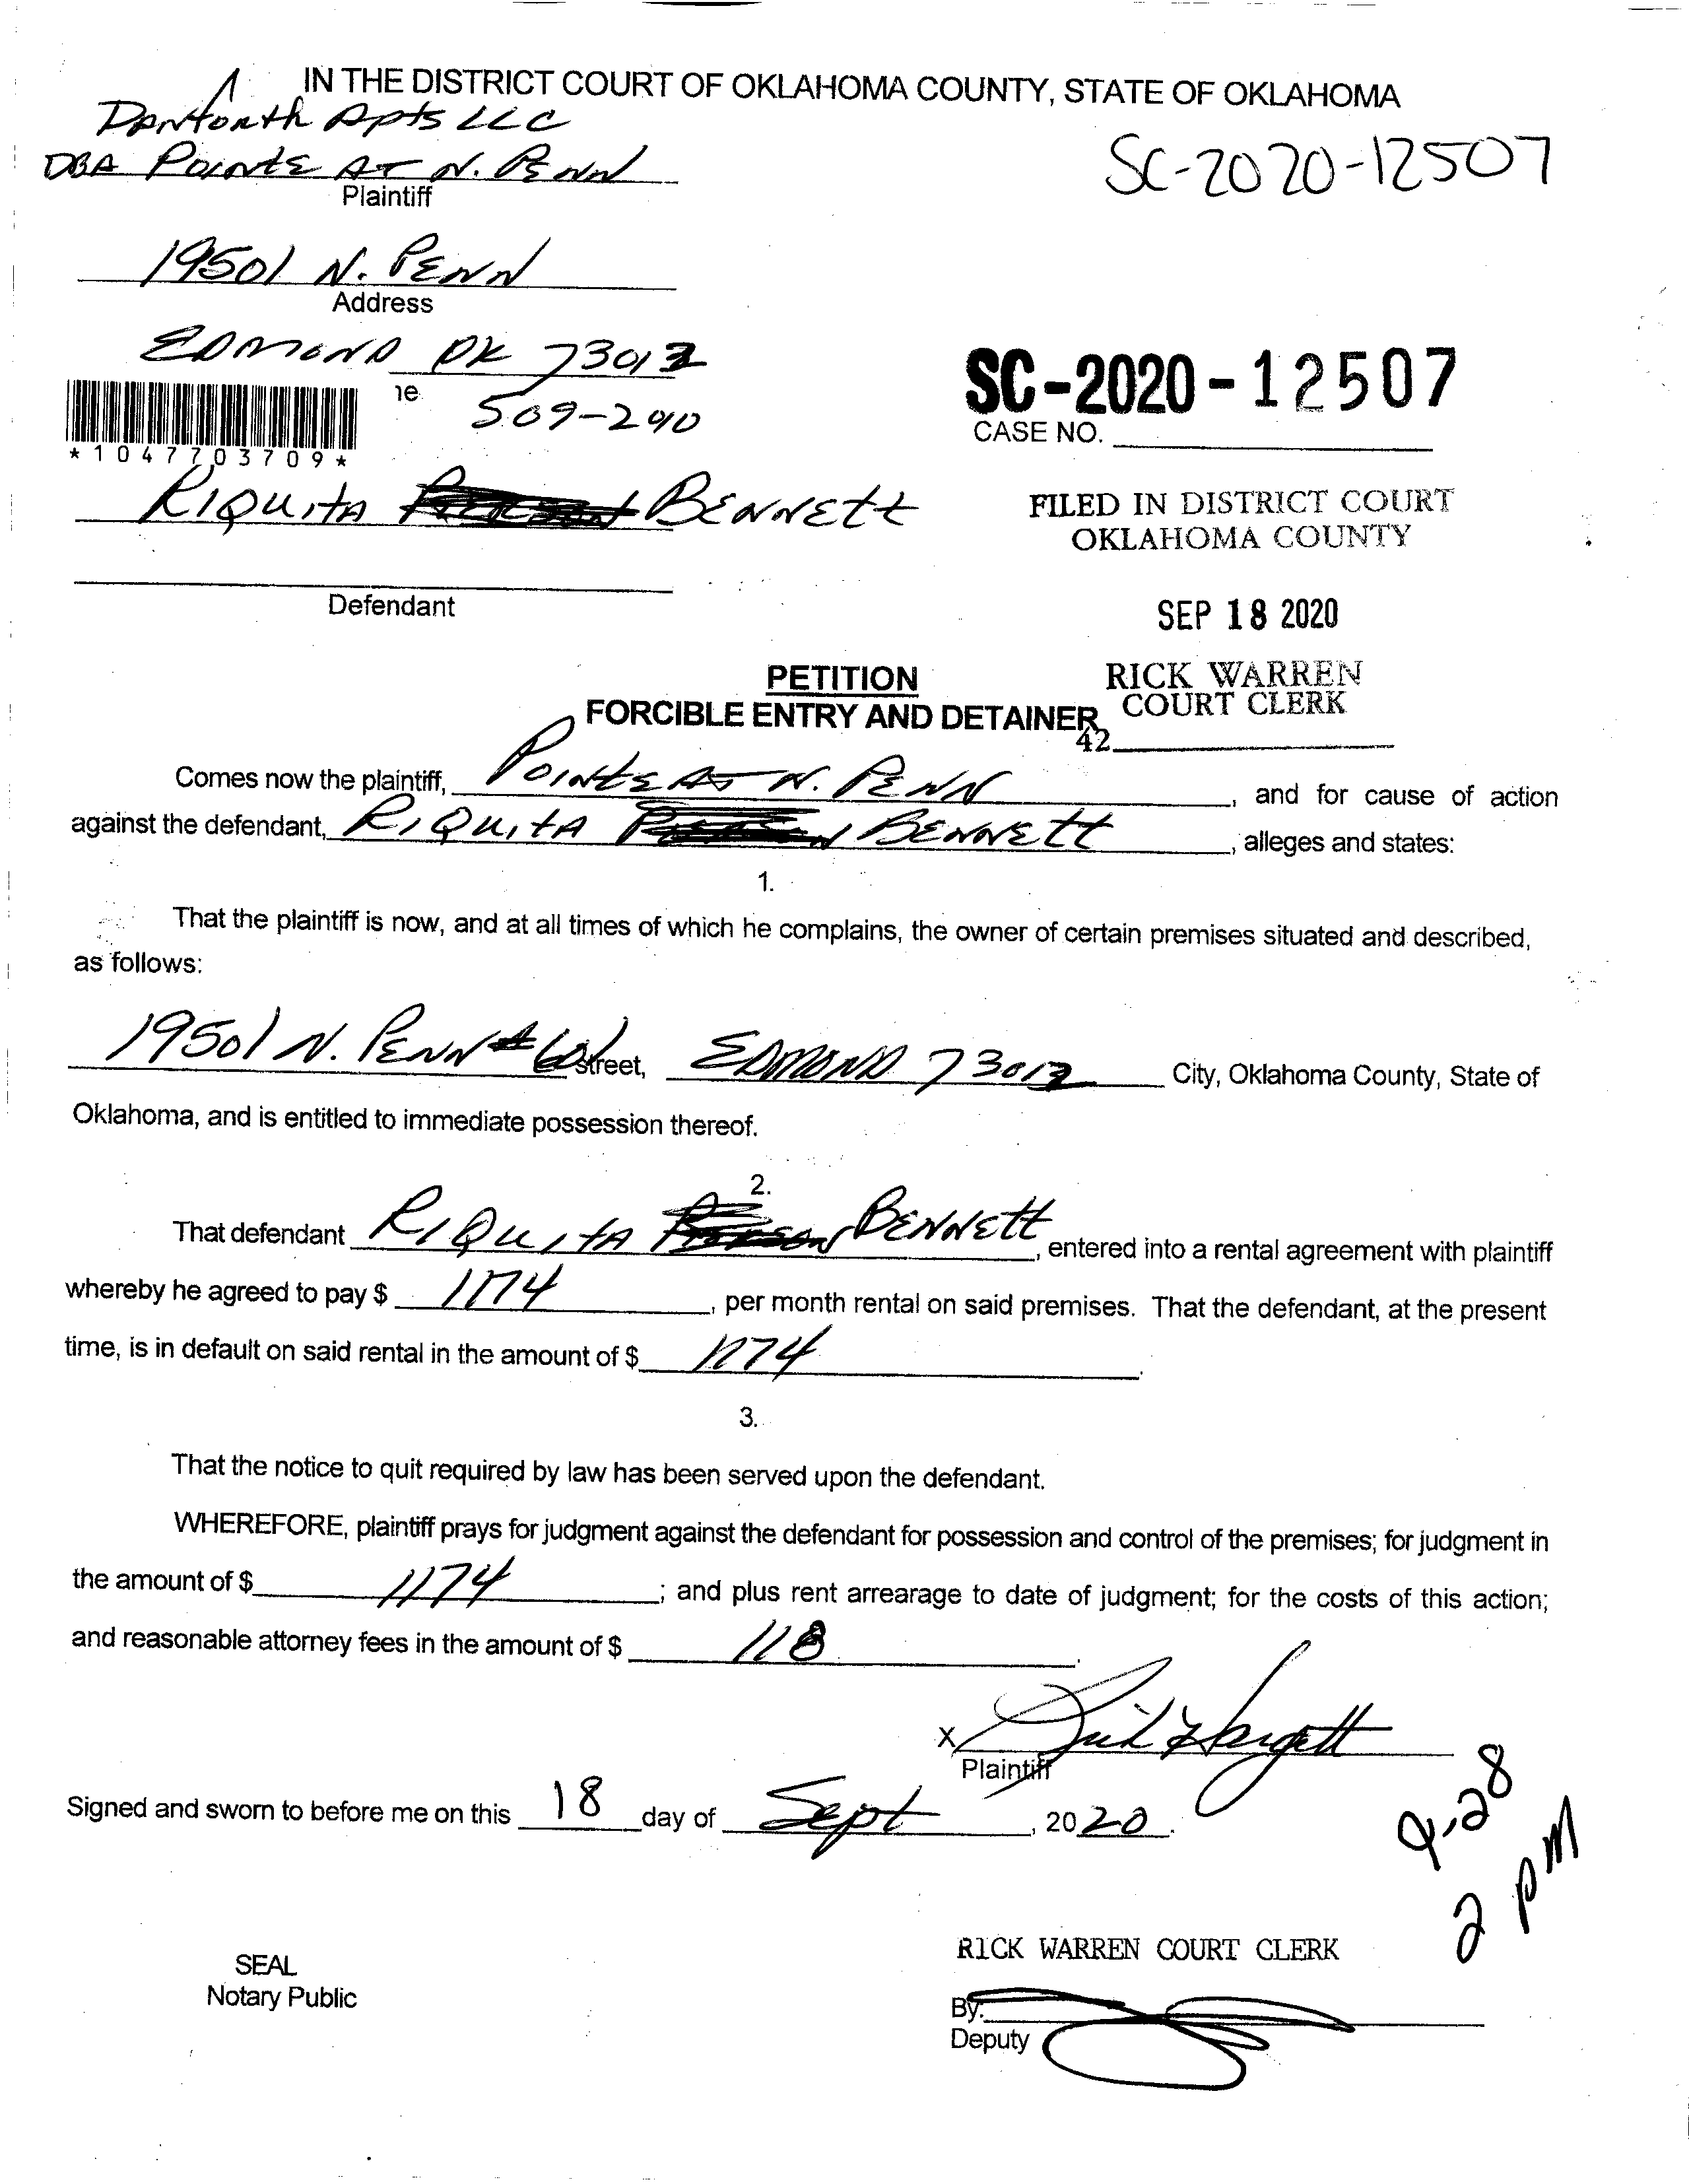 IN THE DISTRICT COURT OF OKLAHOMA COUNTY, STATE OF OKLAHOMA
Danforth Apts LLC
DBA Pointe at N. Penn
Plaintiff
SC-2020-12507
19501 N. Penn
Address
Edmond OK 73012
ne
509-290
*1047703709*
SC-2020-12507
CASE NO.
Riquita Bennett
FILED IN DISTRICT COURT
OKLAHOMA COUNTY
Defendant
SEP 18 2020
PETITION
FORCIBLE ENTRY AND DETAINER
RICK WARREN
COURT CLERK
42
Comes now the plaintiff, Pointe at N. Penn, and for cause of action
against the defendant, Riquita Bennett, alleges and states:
1.
That the plaintiff is now, and at all times of which he complains, the owner of certain premises situated and described,
as follows:
19501 N. Penn # Street, Edmond 73012 City, Oklahoma County, State of
Oklahoma, and is entitled to immediate possession thereof.
2.
That defendant Riquita Bennett, entered into a rental agreement with plaintiff
whereby he agreed to pay $ 1174, per month rental on said premises. That the defendant, at the present
time, is in default on said rental in the amount of $ 1174.
3.
That the notice to quit required by law has been served upon the defendant.
WHEREFORE, plaintiff prays for judgment against the defendant for possession and control of the premises; for judgment in
the amount of $ 1174; and plus rent arrearage to date of judgment; for the costs of this action;
and reasonable attorney fees in the amount of $ 118.
X
Plaintiff
Signed and sworn to before me on this 18 day of Sept, 2020.
9-28
2 pm
SEAL
Notary Public
RICK WARREN COURT CLERK
By:
Deputy